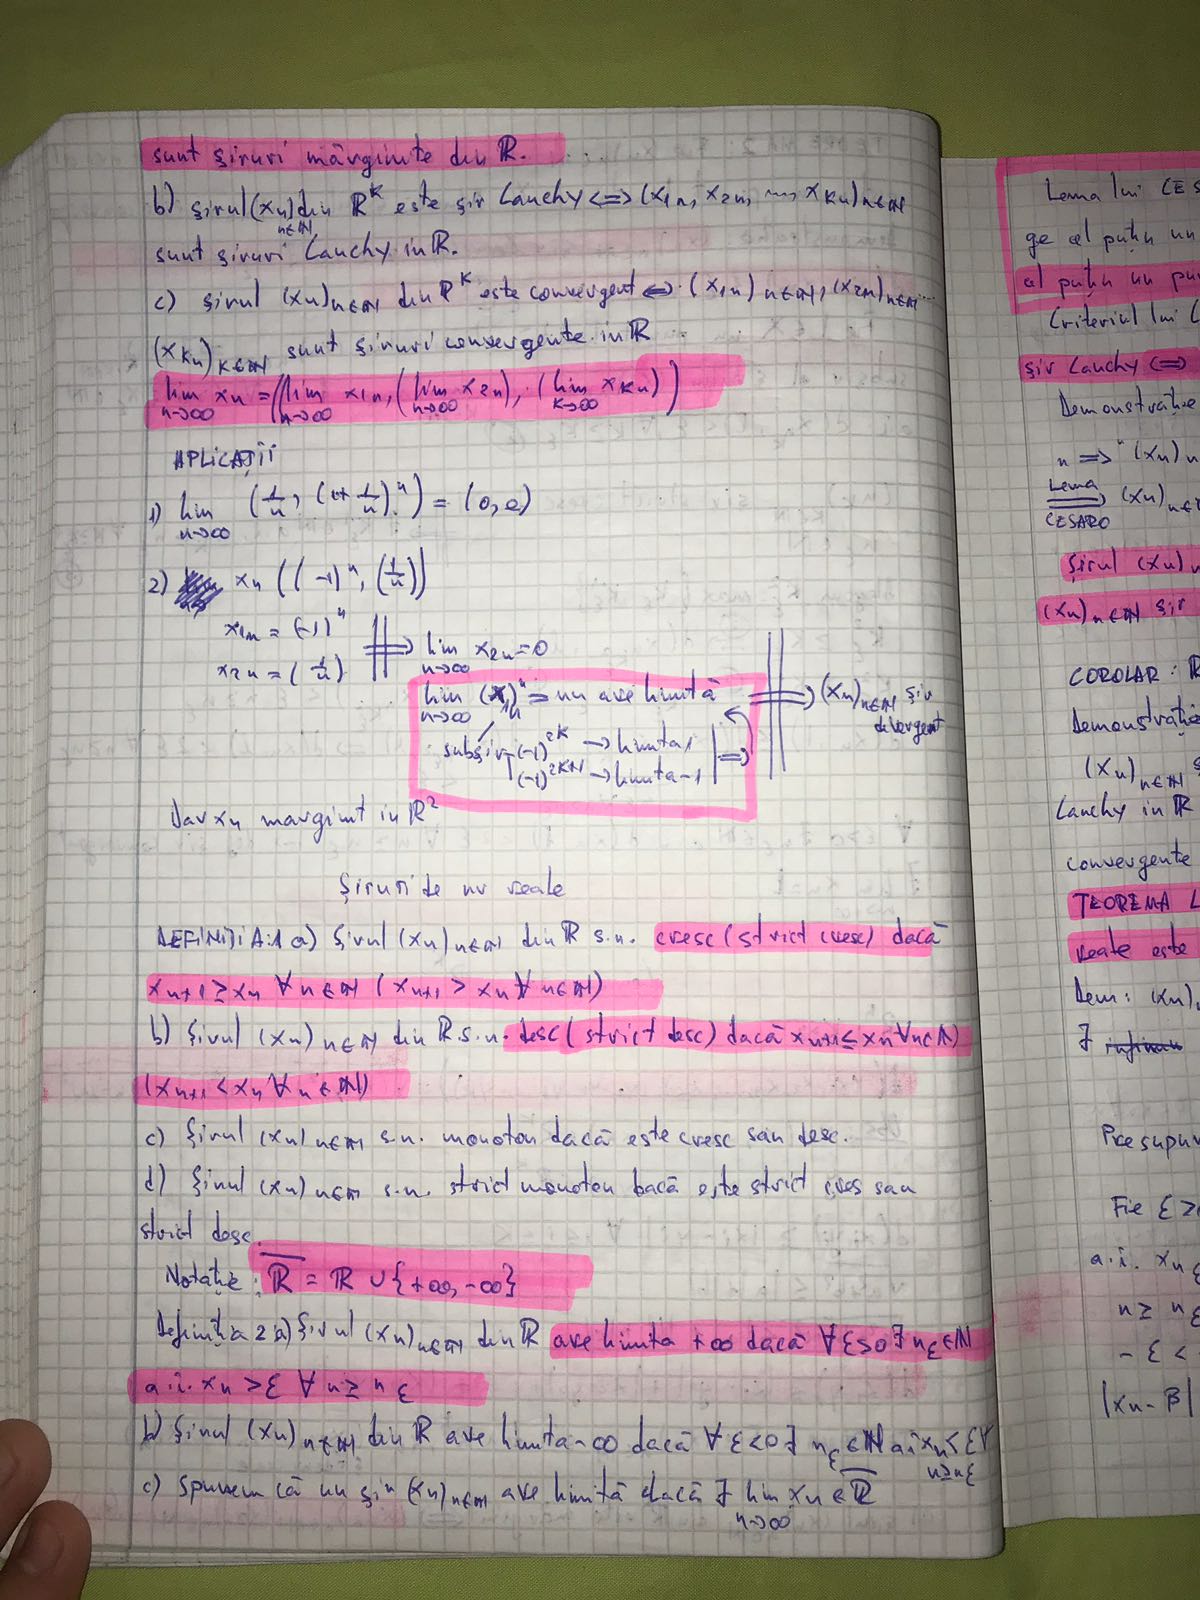 sunt şiruri mărginite din ℝ.
b) şirul (xₙ)n∈ℕ din ℝᵏ este şir Cauchy <=> (x1n, x2n, ..., xkn)n∈ℕ
sunt şiruri Cauchy in ℝ.
c) şirul (xn)n∈ℕ din ℝᵏ este convergent <=> (x1n)n∈ℕ, (x2n)n∈ℕ ...
(xkn)k∈ℕ sunt şiruri convergente in ℝ
lim n→∞ xn = (lim n→∞ x1n, (lim n→∞ x2n), (lim k→∞ xkn))
APLICAŢII
1) lim n→∞ (1/n, (1+1/n)ⁿ) = (0, e)
2) xn ((-1)ⁿ, (1/n))
x1n = (-1)ⁿ
x2n = (1/n)
=> lim n→∞ x2n = 0
lim n→∞ x1n = nu are limită => (xn)n∈ℕ şir divergent
subşir (-1)^2k → limita 1
(-1)^2k+1 → limita -1 =>
Dar xn marginit in ℝ²
Şiruri de nr reale
DEFINIŢIA 1 a) Şirul (xn)n∈ℕ din ℝ s.n. cresc (strict cresc) dacă
xn+1 ≥ xn ∀n∈ℕ (xn+1 > xn ∀n∈ℕ)
b) Şirul (xn)n∈ℕ din ℝ s.n. desc (strict desc) dacă xn+1 ≤ xn ∀n∈ℕ
(xn+1 < xn ∀n∈ℕ)
c) Şirul (xn)n∈ℕ s.n. monoton dacă este cresc sau desc.
d) Şirul (xn)n∈ℕ s.n. strict monoton bacă este strict cres sau
strict desc.
Notaţie: ℝ̅ = ℝ ∪ {+∞, -∞}
Definiţia 2 a) Şirul (xn)n∈ℕ din ℝ are limita +∞ dacă ∀ε>0 ∃ nε∈ℕ
a.i. xn > ε ∀ n ≥ nε
b) Şirul (xn)n∈ℕ din ℝ are limita -∞ dacă ∀ε<0 ∃ nε∈ℕ ai xn < ε ∀
n ≥ nε
c) Spunem că un şir (xn)n∈ℕ are limită dacă ∃ lim n→∞ xn ∈ ℝ̅
Lema lui CES
ge cel puţin un
cel puţin un pu
Criteriul lui C
şir Cauchy <=>
Demonstraţie
„=>" (xn)n
Lema CESARO => (xn)n∈
Şirul (xn)n
(xn)n∈ℕ şir
COROLAR: ℝ
Demonstraţie
(xn)n∈ℕ ş
Cauchy in ℝ
convergente
TEOREMA L
reale este
Dem: (xn)n
∃
Presupun
Fie ε >
a.i. xn
n ≥ nε
- ε <
|xn - β|